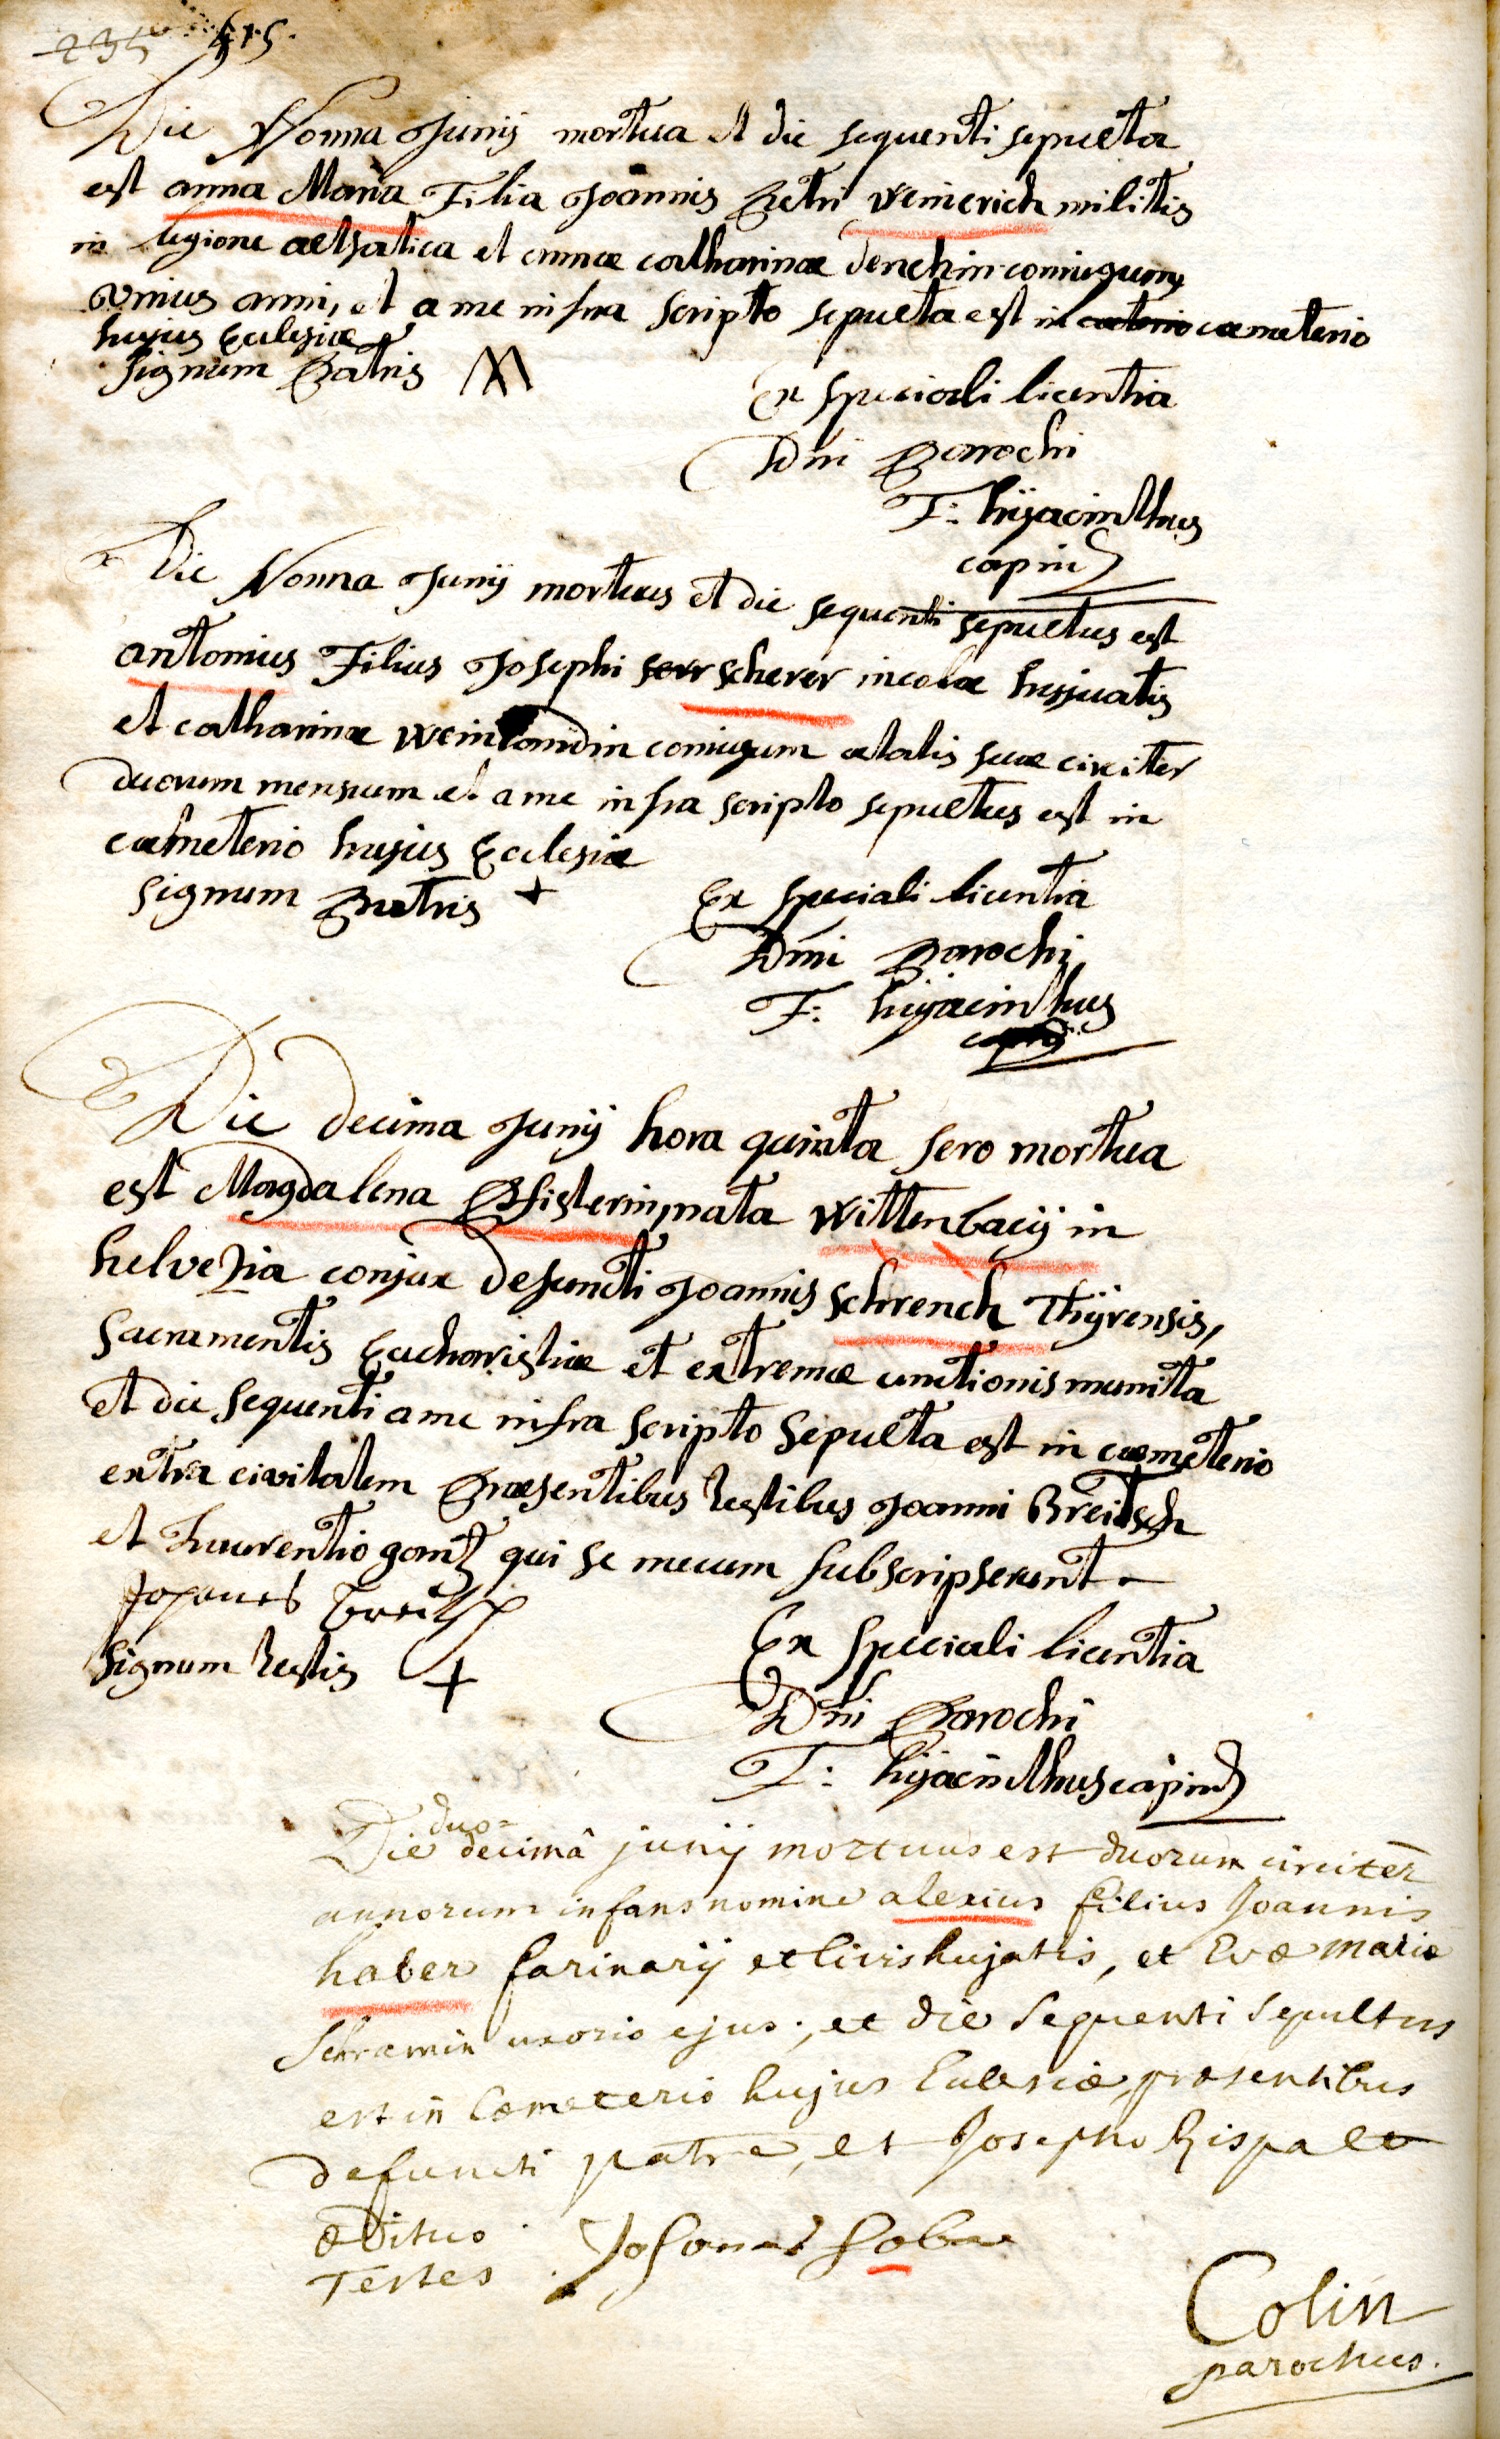 235 415.
Die Nonna Junij mortua et die sequenti sepulta
est anna Maria Filia Joannis Petri Weinerich militis
in legione alsatica et annæ catharinæ Denchin coniugum
Vnius anni, et a me infra scripto sepulta est in cœmeterio
hujus Eclesiæ
signum Patris
Ex speciali licentia
Dni Parochi
F: hijacinthus
capin
Die Nonna Junij mortuus et die sequenti sepultus est
antonius Filius Josephi scherer incolæ hujuatis
et catharinæ Weinlandin coniugum ætatis suæ circiter
duorum mensium et a me infra scripto sepultus est in
cœmeterio hujus Eclesiæ
signum Patris +
Ex speciali licentia
Dni Parochi
F: hijacinthus
Die decima Junij hora quinta sero mortua
est Magdalena Pfisterin, nata Wittenbacij in
helvezia conjux defuncti Joannis schrench Thÿrensis,
sacramentis Eucharistiæ et extremæ unctionis munita
et die sequenti a me infra scripto sepulta est in cœmeterio
extra civitatem Præsentibus testibus Joanni Breitsch
et Laurentio gantz qui se mecum subscripserunt
Johanes Breitsch
signum testis +
Ex speciali licentia
Dni Parochi
F: hijacinthus capin
duo=
Die decimâ junij mortuus est duorum circiter
annorum infans nomine alexius filius Joannis
haber farinarij et civis hujatis, et Evæ Mariæ
Schramin uxoris ejus., et die sequenti sepultus
est in Cæmeterio hujus Eclesiæ præsentibus
defuncti patre, et Josepho Rispalt
ædituo.
Testes. Johanes haber
Colin
parochus.